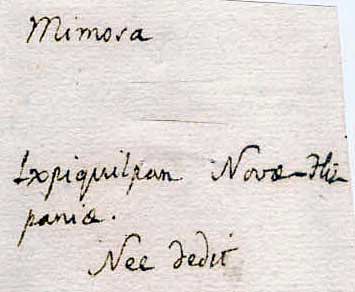 Mimosa
Ixpiquilpan Novæ His-
paniæ.
Nee dedit